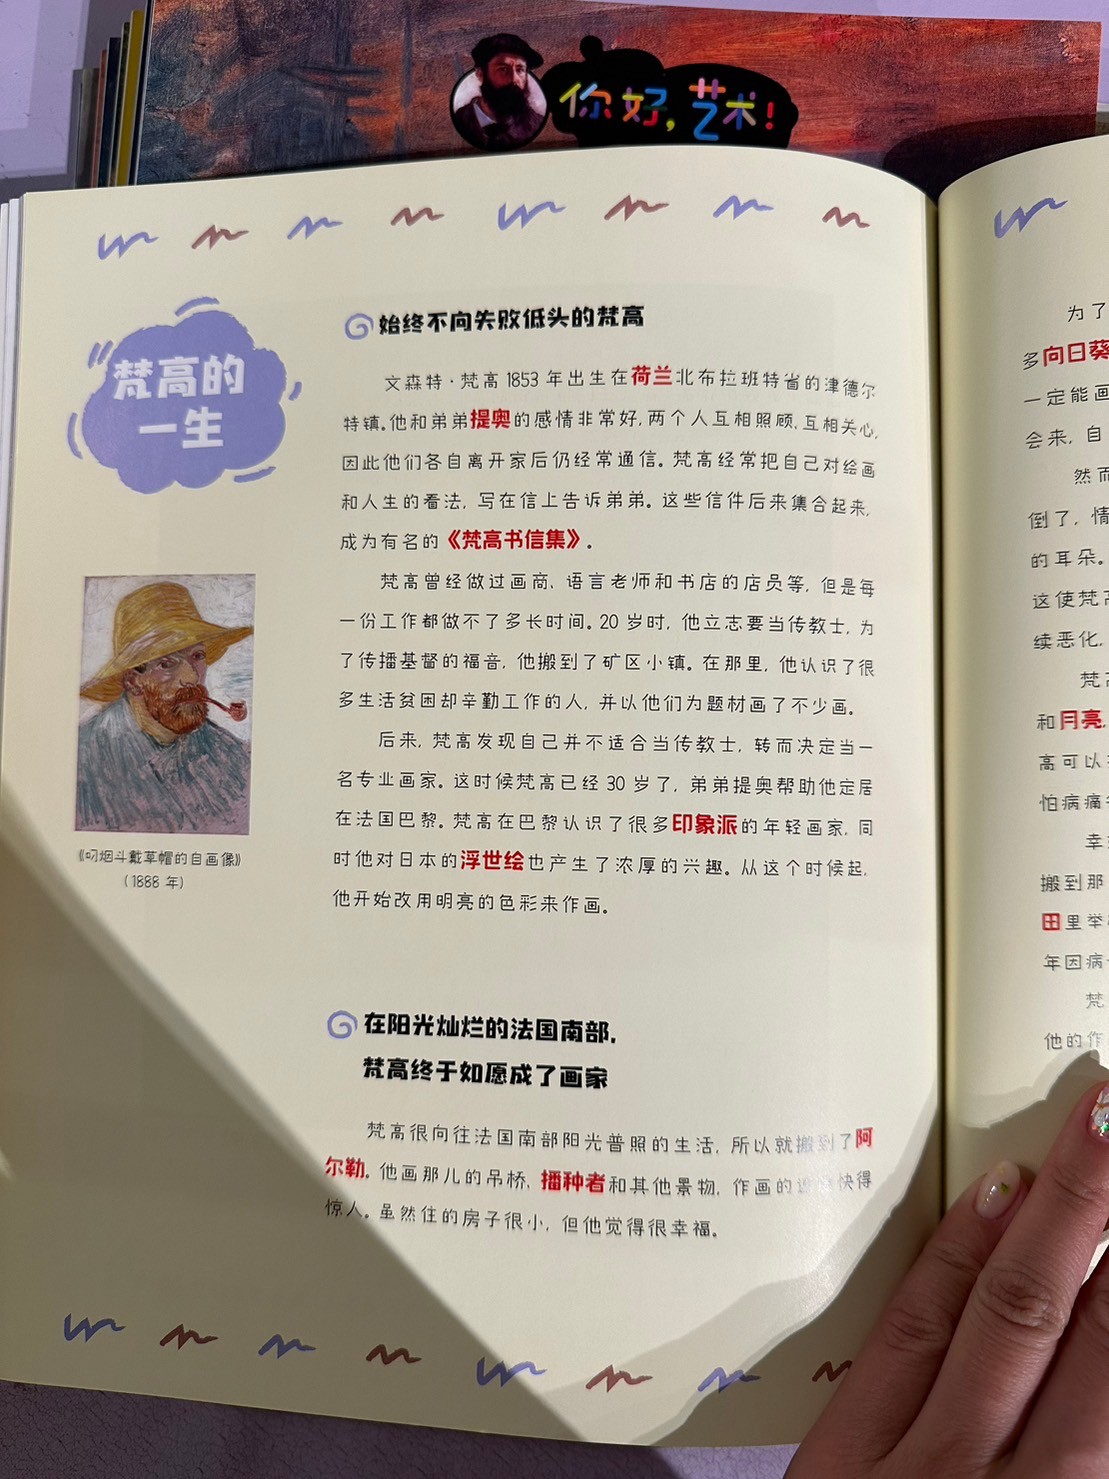 你好,艺术!
梵高的
一生
始终不向失败低头的梵高
文森特·梵高1853年出生在荷兰北布拉班特省的津德尔
特镇。他和弟弟提奥的感情非常好,两个人互相照顾,互相关心,
因此他们各自离开家后仍经常通信。梵高经常把自己对绘画
和人生的看法,写在信上告诉弟弟。这些信件后来集合起来,
成为有名的《梵高书信集》。
梵高曾经做过画商、语言老师和书店的店员等,但是每
一份工作都做不了多长时间。20岁时,他立志要当传教士,为
了传播基督的福音,他搬到了矿区小镇。在那里,他认识了很
多生活贫困却辛勤工作的人,并以他们为题材画了不少画。
后来,梵高发现自己并不适合当传教士,转而决定当一
名专业画家。这时候梵高已经30岁了,弟弟提奥帮助他定居
在法国巴黎。梵高在巴黎认识了很多印象派的年轻画家,同
时他对日本的浮世绘也产生了浓厚的兴趣。从这个时候起,
他开始改用明亮的色彩来作画。
《叼烟斗戴草帽的自画像》
(1888年)
在阳光灿烂的法国南部,
梵高终于如愿成了画家
梵高很向往法国南部阳光普照的生活,所以就搬到了阿
尔勒。他画那儿的吊桥、播种者和其他景物,作画的速度快得
惊人。虽然住的房子很小,但他觉得很幸福。
为了
多向日葵
一定能画
会来,自
然而
倒了,情
的耳朵。
这使梵高
续恶化,
梵高
和月亮,
高可以
怕病痛
幸
搬到那
田里举
年因病
梵
他的作